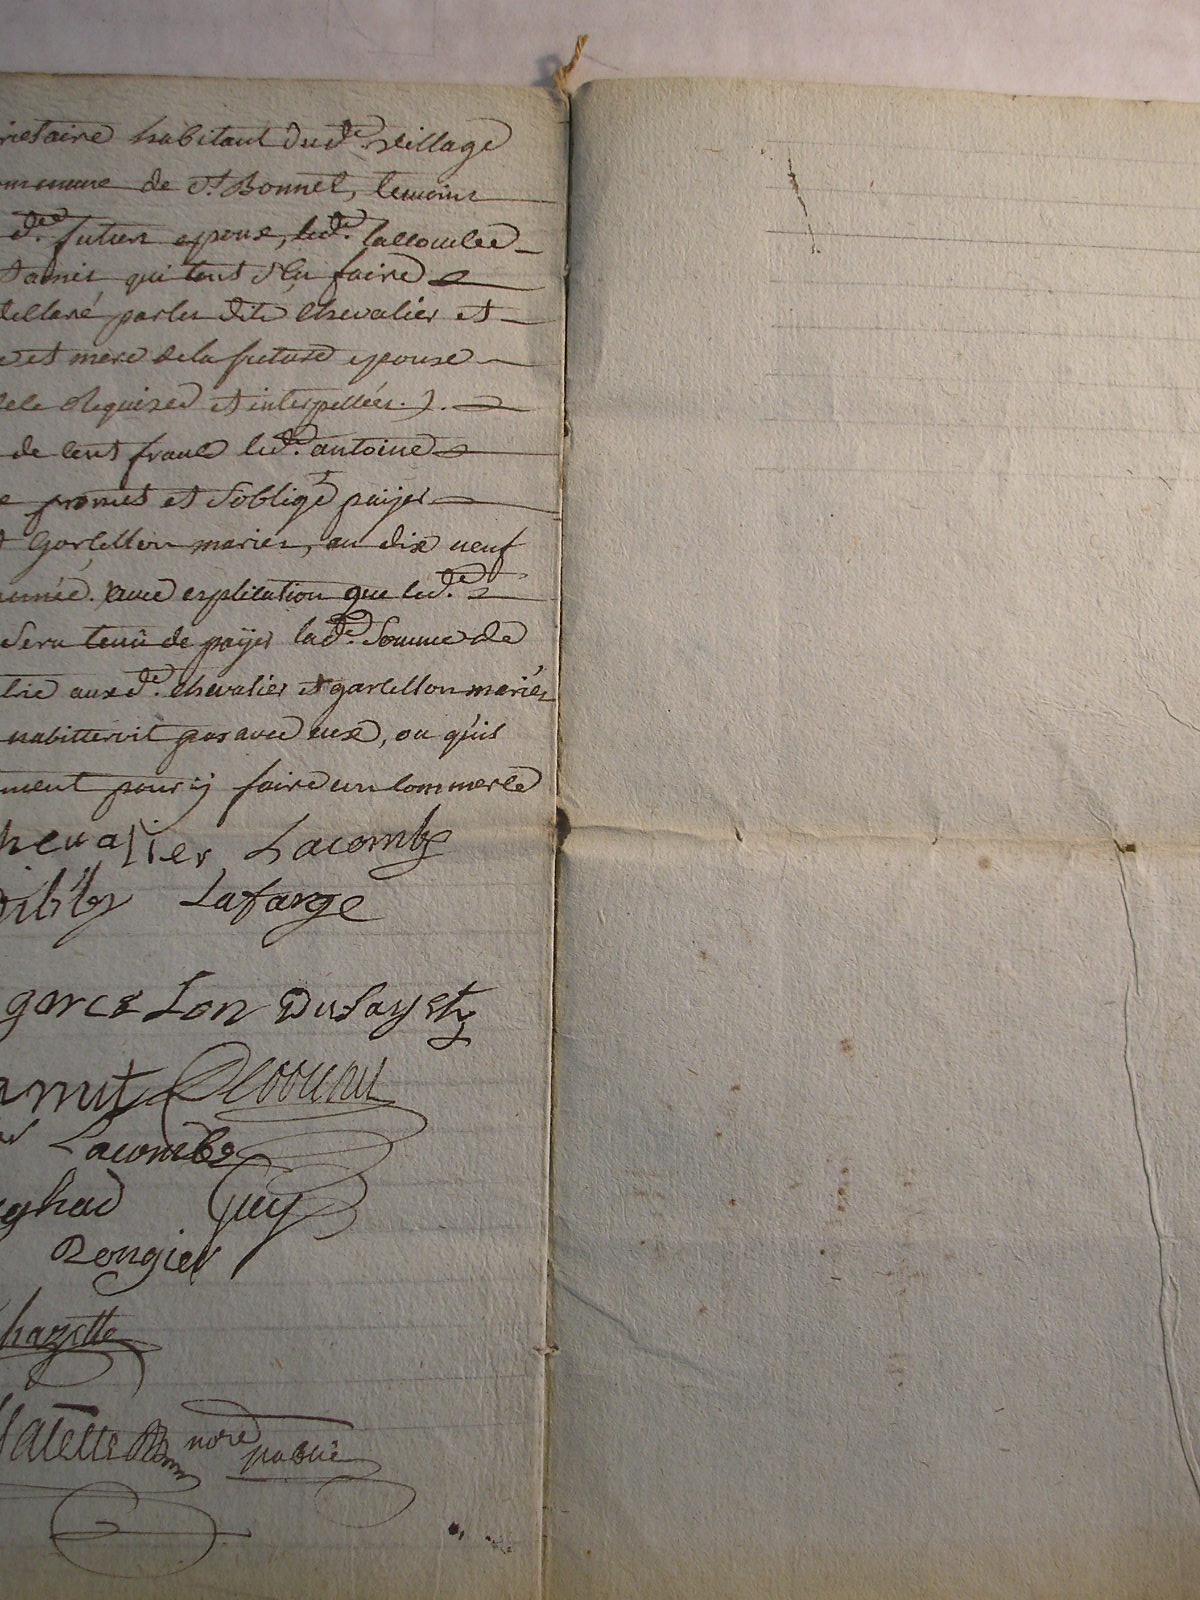 rietaire habitant dud.t village
ommune de S.t Bonnet, temoins
d.t futur epoux, led.t Lacombe
t amis, qui tous seu faire
declaré par les dits Chevalier et
e et mere de la future epouse
de ce Requises et interpellées.).
de cent francs led.t antoine
e promet et s'oblige payer
t Garcellon mariés, au dix neuf
année. avec explication que led.t
Sera tenü de païer lad.te Somme de
aux d.ts Chevalier et garcellon mariés
habitteroit pas avec eux, ou qu'ils
ment pour ij faire un Commerce
heualier Lacombe
Lafarge
garceLon Dufayet
Lacombe
ghad Guy
Rongier
hazette
nore public